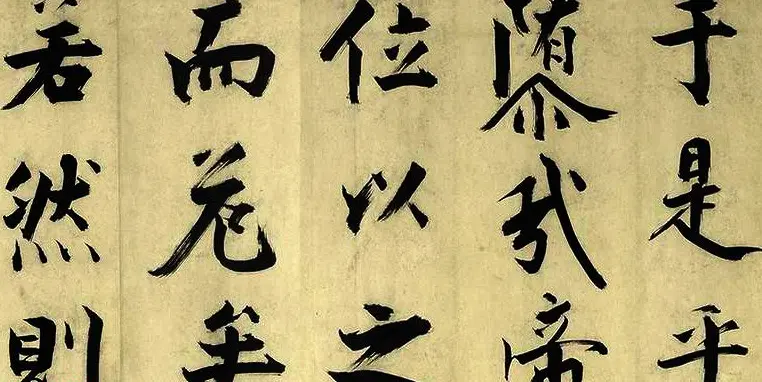 于是乎
隳我帝
位以之
而危矣
若然則